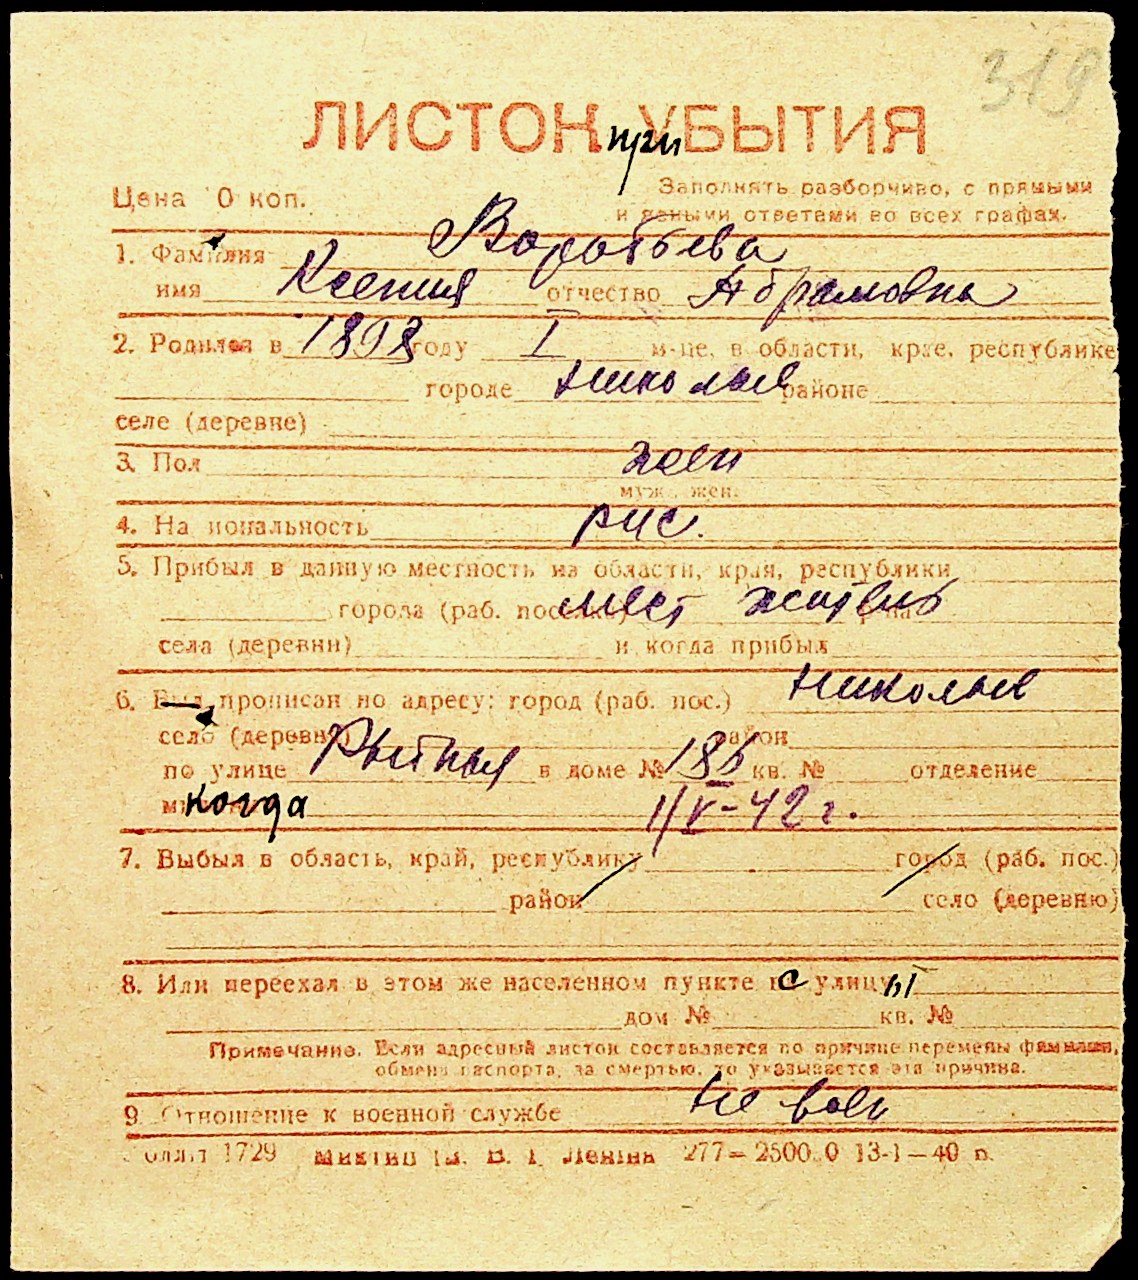 319
ЛИСТОК при УБЫТИЯ
Цена 10 коп.
Заполнять разборчиво, с прямыми
и ясными ответами во всех графах.
1. Фамилия Воробьева
имя Ксения отчество Абрамовна
2. Родился в 1898 году I м-це, в области, крае, республике
городе Николаев районе
селе (деревне)
3. Пол жен
муж., жен.
4. Национальность рус.
5. Прибыл в данную местность из области, края, республики
города (раб. поселка) мест житель р-на
села (деревни) и когда прибыл
6. Был прописан по адресу: город (раб. пос.) Николаев
село (деревня) район
по улице Рыбная в доме № 186 кв. № отделение
когда 1/V-42 г.
7. Выбыл в область, край, республику город (раб. пос.)
район село (деревню)
8. Или переехал в этом же населенном пункте с улицы
дом № кв. №
Примечание. Если адресный листок составляется по причине перемены фамилии,
обмена паспорта, за смертью, то указывается эта причина.
9. Отношение к военной службе не воен
1729 277—2500.0 13-I—40 р.